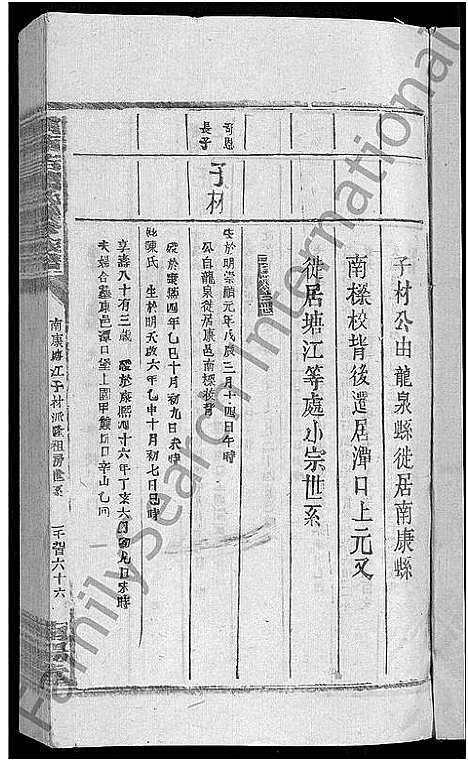 子材公由龍泉縣徙居南康縣
南樑校背後遷居潭口上元又
徙居塘江等處小宗世系
奇恩
長子
子材
生於明崇禎元年戊辰三月十四日午時
公自龍泉徙居康邑南樑校背
歿於康熙四年乙巳十月初九日未時
陳氏 生於明天啟六年 十月初七日 時
享壽八十有三歲 歿於康熙四十六年丁亥六月初九日未時
夫婦合墓康邑潭口堡上園甲 口辛山乙向
南康塘江子材派 祖房世系
六十六
FamilySearch International